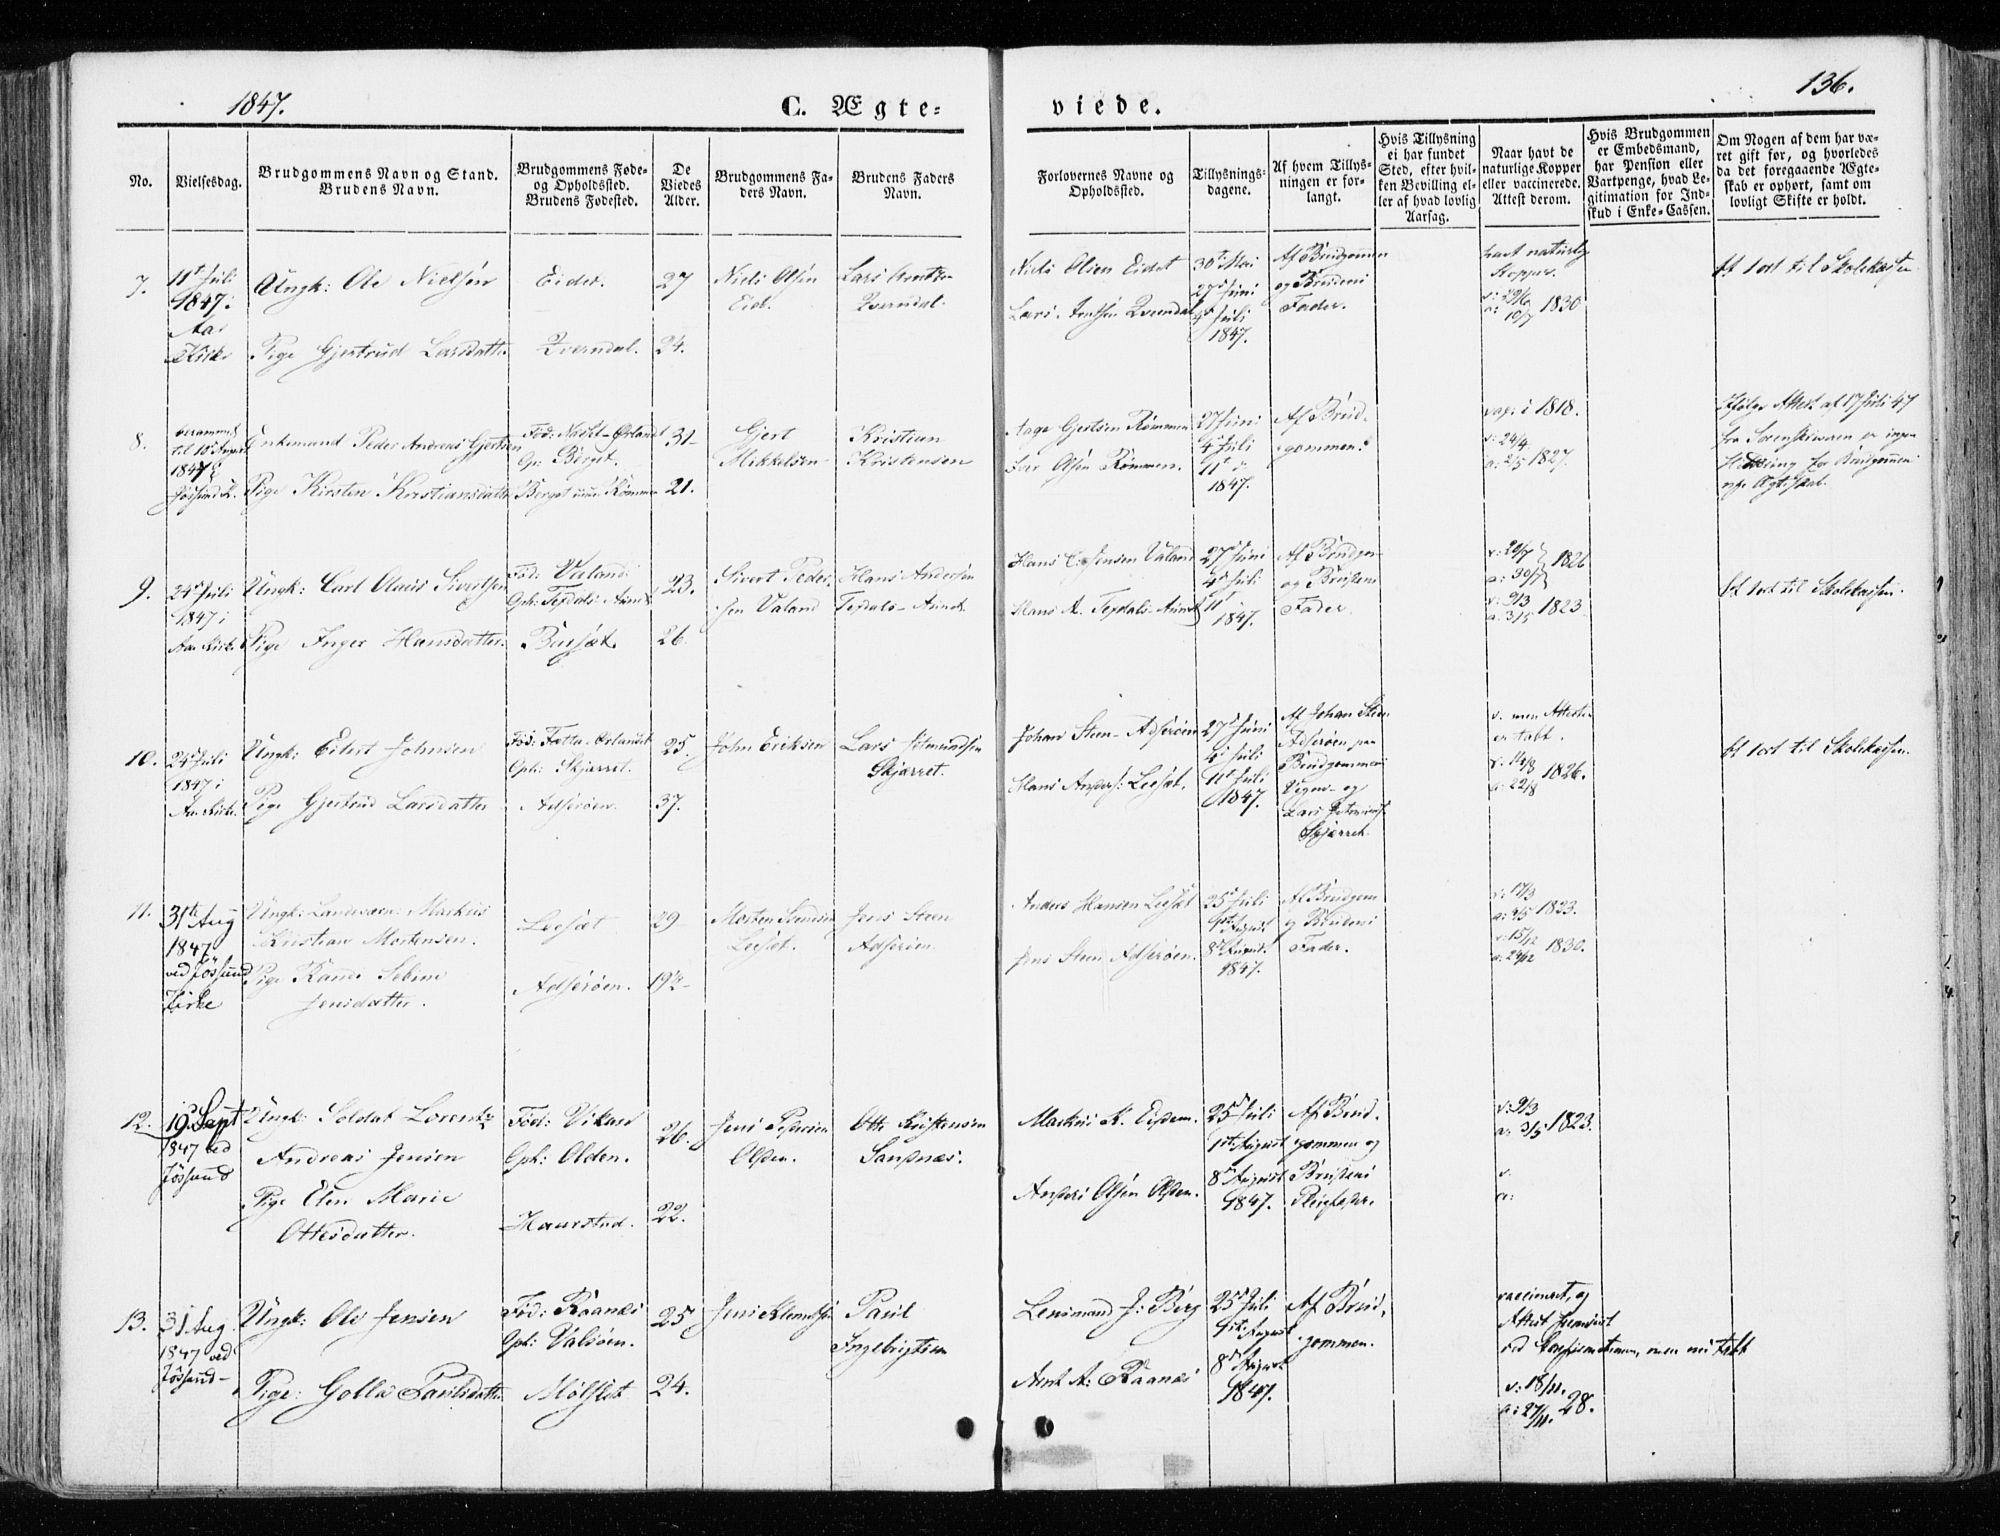 1847.
C. Ægte=
viede.
136.
No.
Vielsesdag.
Brudgommens Navn og Stand.
Brudens Navn.
Brudgommens Føde-
og Opholdssted.
Brudens Fødested.
De
Viedes
Alder.
Brudgommens Fa-
ders Navn.
Brudens Faders
Navn.
Forlovernes Navne og
Opholdssted.
Tillysnings-
dagene.
Af hvem Tillys-
ningen er for-
langt.
Hvis Tillysning
ei har fundet
Sted, efter hvil-
ken Bevilling el-
ler af hvad lovlig
Aarsag.
Naar havt de
naturlige Kopper
eller vaccinerede.
Attest derom.
Hvis Brudgommen
er Embedsmand,
har Pension eller
Vartpenge, hvad Le-
gitimation for Ind-
skud i Enke=Cassen.
Om Nogen af dem har væ-
ret gift før, og hvorledes
da det foregaaende Ægte-
skab er ophørt, samt om
lovligt Skifte er holdt.
7.
11t Juli
1847 i
Aa
Kirke
Ungk: Ole Nielsen
Pige Gjertrud Larsdatter
Eidet.
Qverndal.
27
24.
Niels Olsen
Eid.
Lars
Qverndal.
Niels Olsen Eidet
Lars Arntsen Qverndal
30t Mai
27d Juni
4d Juli
1847.
Af Brudgommen
og Brudens
Fader.
havt naturlig
Kopper.
1830
til Skolekassen
8.
berammet
til 10d August
1847
Jøssund K.
Enkemand Peder Andreas Gjertsen
Pige Kirsten Kristiansdatter
Ørland
Op: Berget.
Berget
31
21.
Gjert
Mikkelsen
Kristian
Kristensen
Aage Gjertsen Rømmen
Olsen Rømmen.
27 Juni
4d Juli
11t
1847.
Af Brud-
gommen.
vac: i 1818.
v: 24/4
a: 2/5 1827.
Ifølge Attest af 17 Juli 47
fra Sorenskriveren er ingen
for Brudgommen
9.
24d Juli
1847 i
Aa Kirke
Ungk: Carl Olaus Sivertsen
Pige Inger Hansdatter.
Fød: Valand
Oph: Texdals-Aunet
23.
26.
Sivert Peder-
sen Valand
Hans Andersen
Texdals-Aunet.
Hans Jensen Valand
Hans A. Texdals-Aunet
27d Juni
4d Juli
11t
1847.
Af Brudgom
og Brudens
Fader.
v: 20/7
a: 30/7
1826
v: 9/3
a: 3/5 1823.
til Skolekassen.
10.
24d Juli
1847 i
Aa Kirke.
Ungk: Eilert Johnsen
Pige Gjertrud Larsdatter
Oph: Skjærret.
Adserøen.
25.
37.
John Eriksen
Lars
Skjærret.
Johan Steen Adserøen
Hans Anders: Leesæt.
27d Juni
4d Juli
11t Juli
1847.
Af Johan Steen
Adserøen paa
Brudgommens
Vegne og
Lars
Skjærret.
v. men Attesten
er tabt.
v. 14/8
a: 22/8 1826.
til Skolekassen.
11.
31te Aug
1847
ved Jøssund
Kirke
Ungk: Landværn: Markus
Kristian Mortensen.
Pige
Jensdatter.
Leesæt
Adserøen.
29
19½
Morten
Leesæt.
Jens Steen
Adserøen
Anders Hansen Leesæt
Jens Steen Adserøen.
25d Juli
1st August
8d August
1847.
Af Brudgom
og Brudens
Fader.
v: 17/3
1823.
v: 15/12
a: 24/12 1830.
12.
19 Sept
1847 ved
Jøssund
Ungk: Soldat Lorents
Andreas Jensen
Pige Elen Marie
Ottesdatter.
Fød: Vikan
Oph: Olden.
Haarstad.
26.
22.
Jens Pedersen
Olden.
Otte Kristensen
Sandnæs.
Markus K.
Anders Olsen Olden.
25d Juli
1st August
8d August
1847.
Af Brud-
gommen og
Brudens
Pleiefader.
v: 9/3
a: 3/5 1823.
v.
a:
13.
31 Aug
1847 ved
Jøssund
Ungk: Ole Jensen
Pige: Golla Paulsdatter
Fød: Raanæs
Oph: Valsøen.
Mølslet
25
24.
Jens Klemetsen
Paul
Ingebrigtsen
Lensmand J: Berg
Arnt A: Raanæs
25d Juli
1st August
8d August
1847.
Af Brud-
gommen.
vaccineret, og
Attest fremvist
ved Konfirmationen, men nu tabt
v: 18/11.
a: 27/11. 28.